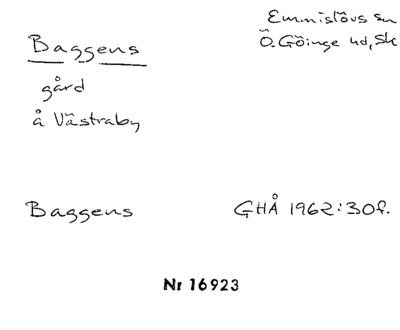 Baggens
Emmislövs sn
Ö. Göinge hd, Sk
gård
å Västraby
Baggens
GHÅ 1962:30f.
Nr 16923